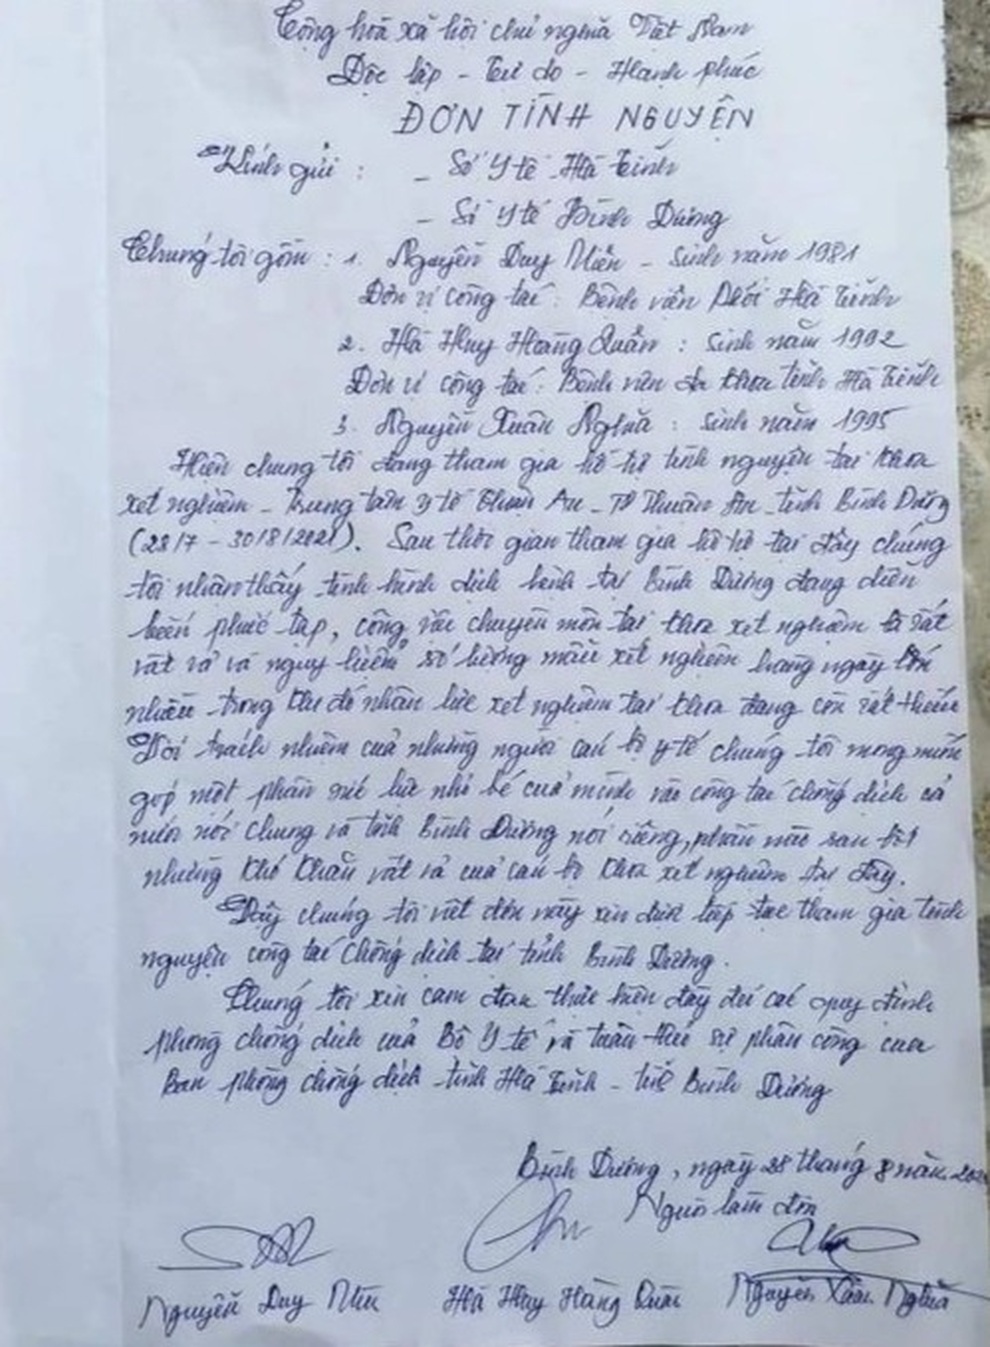 Cộng hoà xã hội chủ nghĩa Việt Nam
Độc lập - Tự do - Hạnh phúc
ĐƠN TÌNH NGUYỆN
Kính gửi : - Sở Y tế Hà Tĩnh
- Sở Y tế Bình Dương
Chúng tôi gồm : 1. Nguyễn Duy - Sinh năm 1981
Đơn vị công tác : Bệnh viện Phổi Hà Tĩnh
2. Hà Huy Hoàng Quân : Sinh năm 1992
Đơn vị công tác : Bệnh viện đa khoa tỉnh Hà Tĩnh
3. Nguyễn Xuân Nghĩa : Sinh năm 1995
Hiện chúng tôi đang tham gia hỗ trợ tình nguyện tại khoa
xét nghiệm - Trung tâm y tế Thuận An - TP Thuận An - tỉnh Bình Dương
(28/7 - 30/8/2021). Sau thời gian tham gia hỗ trợ tại đây chúng
tôi nhận thấy tình hình dịch bệnh tại Bình Dương đang diễn
biến phức tạp, công việc chuyên môn tại khoa xét nghiệm là rất
vất vả và nguy hiểm số lượng mẫu xét nghiệm hàng ngày lớn
nhiều trong khi đó nhân lực xét nghiệm tại khoa đang còn rất thiếu
Với trách nhiệm của những người cán bộ y tế chúng tôi mong muốn
góp một phần sức lực nhỏ bé của mình vào công tác chống dịch cả
nước nói chung và tỉnh Bình Dương nói riêng, phần nào san bớt
những khó khăn vất vả của cán bộ khoa xét nghiệm tại đây.
Vậy chúng tôi viết đơn này xin được tiếp tục tham gia tình
nguyện công tác chống dịch tại tỉnh Bình Dương.
Chúng tôi xin cam đoan thực hiện đầy đủ các quy định
phòng chống dịch của Bộ Y tế và tuân thủ sự phân công của
Ban phòng chống dịch tỉnh Hà Tĩnh - tỉnh Bình Dương
Bình Dương, ngày 28 tháng 8 năm
Người làm đơn
Nguyễn Duy Hà Huy Hoàng Quân Nguyễn Xuân Nghĩa